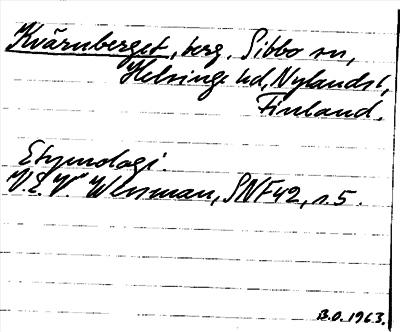 Kvärnberget, berg. Sibbo sn,
Helsinge hd, Nylands l,
Finland.
Etymologi.
V.E.V. Wessman, SNF 42, s. 5.
B.O. 1963.